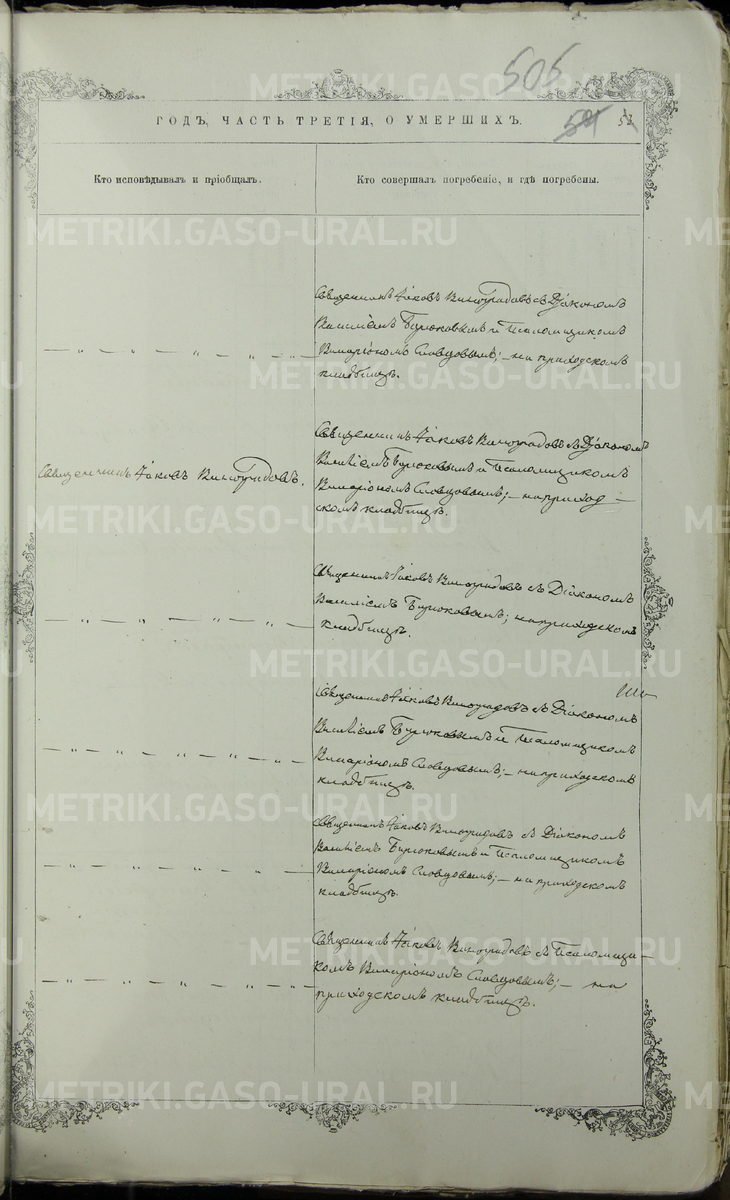 505
ГОДЪ, ЧАСТЬ ТРЕТІЯ, О УМЕРШИХЪ.
Кто исповѣдывалъ и пріобщалъ.
Кто совершалъ погребеніе, и гдѣ погребены.
Священникъ Іаковъ Виноградовъ съ Діакономъ
Василіемъ Бирюковымъ и Псаломщикомъ
— „ — „ — „ — „ —
Иларіономъ Словцовымъ; — на приходскомъ
кладбищѣ.
Священникъ Іаковъ Виноградовъ съ Діакономъ
Василіемъ Бирюковымъ и Псаломщикомъ
Священникъ Іаковъ Виноградовъ.
Иларіономъ Словцовымъ; — на приход-
скомъ кладбищѣ.
Священникъ Іаковъ Виноградовъ съ Діакономъ
Василіемъ Бирюковымъ; на приходскомъ
— „ — „ — „ — „ —
кладбищѣ.
Священникъ Іаковъ Виноградовъ съ Діакономъ
Василіемъ Бирюковымъ и Псаломщикомъ
— „ — „ — „ — „ —
Иларіономъ Словцовымъ; — на приходскомъ
кладбищѣ.
Священникъ Іаковъ Виноградовъ съ Діакономъ
Василіемъ Бирюковымъ и Псаломщикомъ
— „ — „ — „ — „ —
Иларіономъ Словцовымъ; — на приходскомъ
кладбищѣ.
Священникъ Іаковъ Виноградовъ съ Псаломщи-
комъ Иларіономъ Словцовымъ; — на
— „ — „ — „ — „ —
приходскомъ кладбищѣ.
METRIKI.GASO-URAL.RU